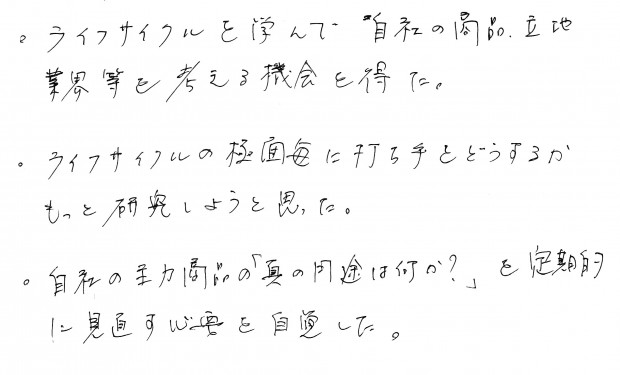 。ライフサイクルを学んで自社の商品、立地
業界等を考える機会を得た。
。ライフサイクルの極面毎に打ち手をどうするか
もっと研究しようと思った。
。自社の主力商品の「真の用途は何か?」を定期的
に見直す必要を自覚した。